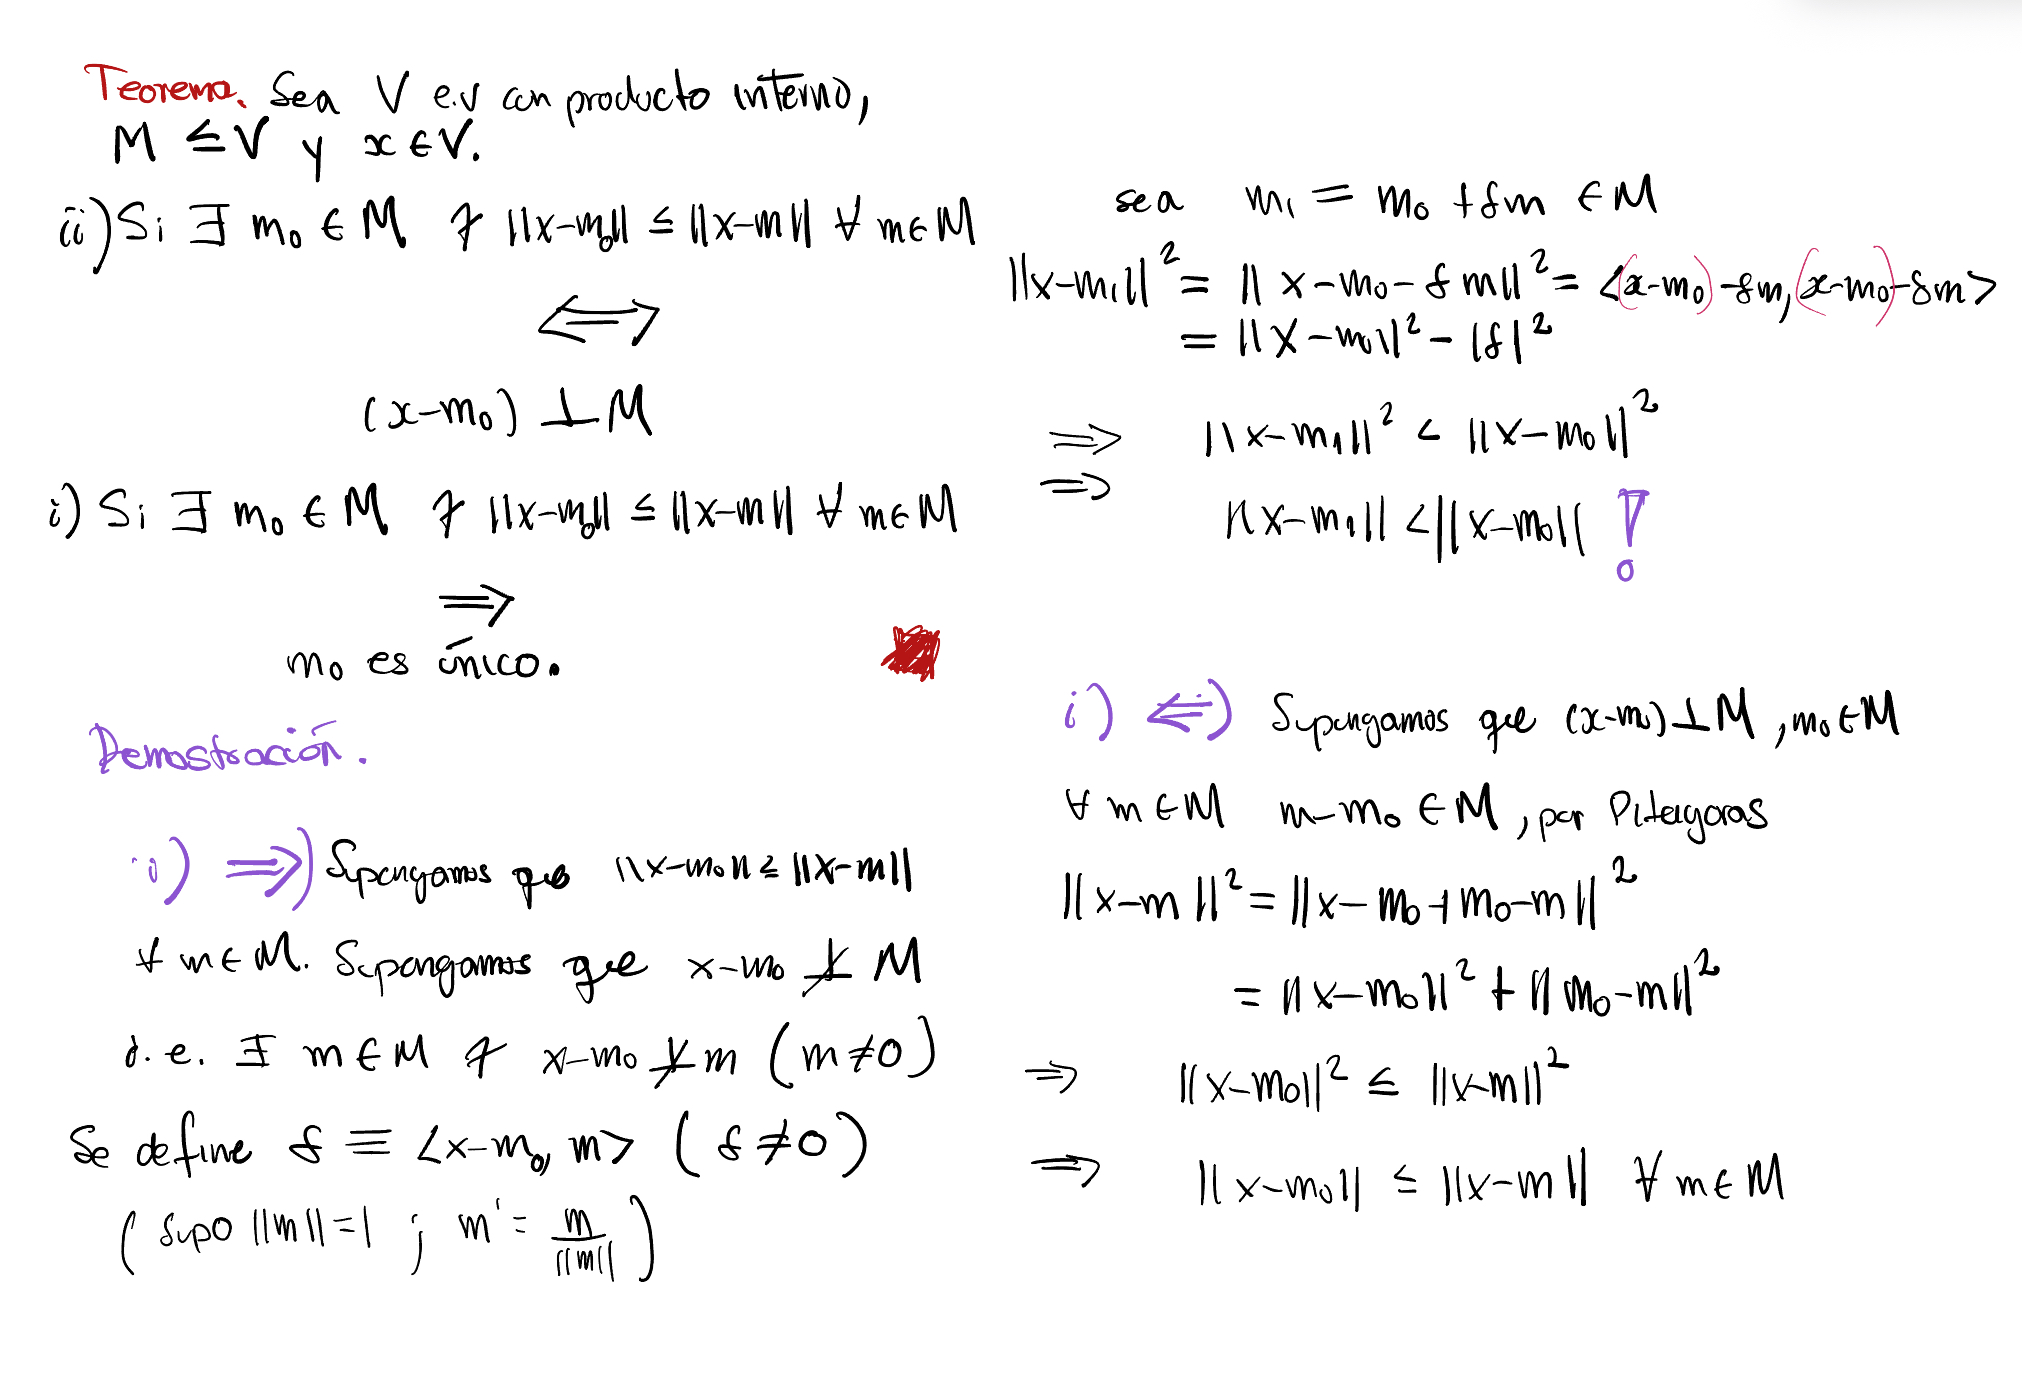 Teorema. Sea V e.v con producto interno,
M ≤ V y x ∈ V.
ii) Si ∃ m₀ ∈ M ∤ ||x-m₀|| ≤ ||x-m|| ∀ m ∈ M
⟺
(x-m₀) ⊥ M
i) Si ∃ m₀ ∈ M ∤ ||x-m₀|| ≤ ||x-m|| ∀ m ∈ M
⟹
m₀ es único.
Demostración.
i) ⟹) Supongamos que ||x-m₀|| ≤ ||x-m||
∀ m ∈ M. Supongamos que x-m₀ ⊥̸ M
i.e. ∃ m ∈ M ∤ x-m₀ ⊥̸ m (m≠0)
Se define δ ≡ <x-m₀, m> (δ≠0)
(Supo ||m||=1 ; m' = m/||m||)
sea m₁ = m₀ + δm ∈ M
||x-m₁||² = ||x-m₀-δm||² = <(x-m₀)-δm, (x-m₀)-δm>
= ||x-m₀||² - |δ|²
⟹ ||x-m₁||² < ||x-m₀||²
⟹ ||x-m₁|| < ||x-m₀|| !
i) ⟸) Supongamos que (x-m₀) ⊥ M, m₀ ∈ M
∀ m ∈ M m-m₀ ∈ M, por Pitagoras
||x-m||² = ||x-m₀+m₀-m||²
= ||x-m₀||² + ||m₀-m||²
⟹ ||x-m₀||² ≤ ||x-m||²
⟹ ||x-m₀|| ≤ ||x-m|| ∀ m ∈ M